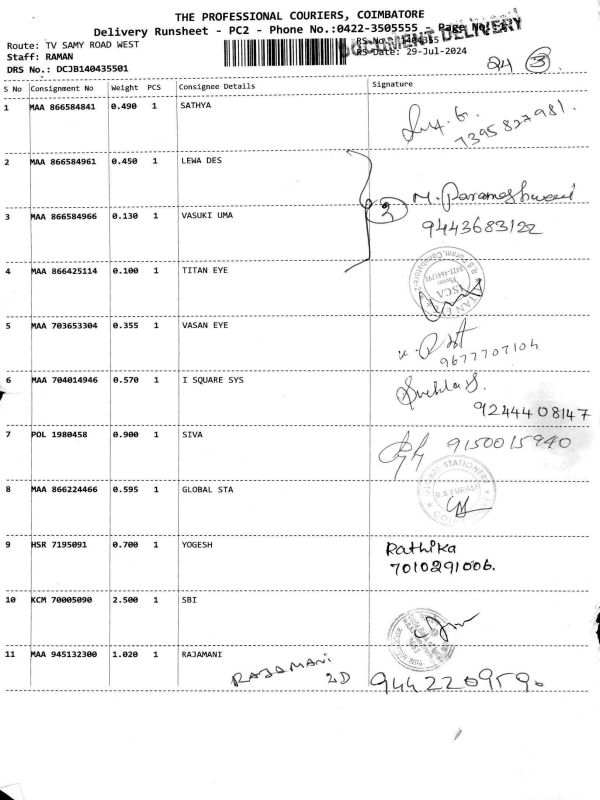 THE PROFESSIONAL COURIERS, COIMBATORE
Delivery Runsheet - PC2 - Phone No.:0422-3505555 - Page No
DOCUMENT DELIVERY
Route: TV SAMY ROAD WEST
Staff: RAMAN
DRS No.: DCJB140435501
RS Date: 29-Jul-2024
24 3
S No Consignment No Weight PCS Consignee Details Signature
1 MAA 866584841 0.490 1 SATHYA
7395827981.
2 MAA 866584961 0.450 1 LEWA DES
2 M. Parameshwari
3 MAA 866584966 0.130 1 VASUKI UMA 9443683122
4 MAA 866425114 0.100 1 TITAN EYE
R S Puram, Coimbatore-2
Phone:
0422-4641798
5 MAA 703653304 0.355 1 VASAN EYE
9677707104
6 MAA 704014946 0.570 1 I SQUARE SYS
9244408147
7 POL 1980458 0.900 1 SIVA 9150015940
GLOBAL STATIONERY
R.S PURAM
8 MAA 866224466 0.595 1 GLOBAL STA
9 HSR 7195091 0.700 1 YOGESH Rathika
7010291006.
10 KCM 70005090 2.500 1 SBI
11 MAA 945132300 1.020 1 RAJAMANI
RAJAMANI 9442209590